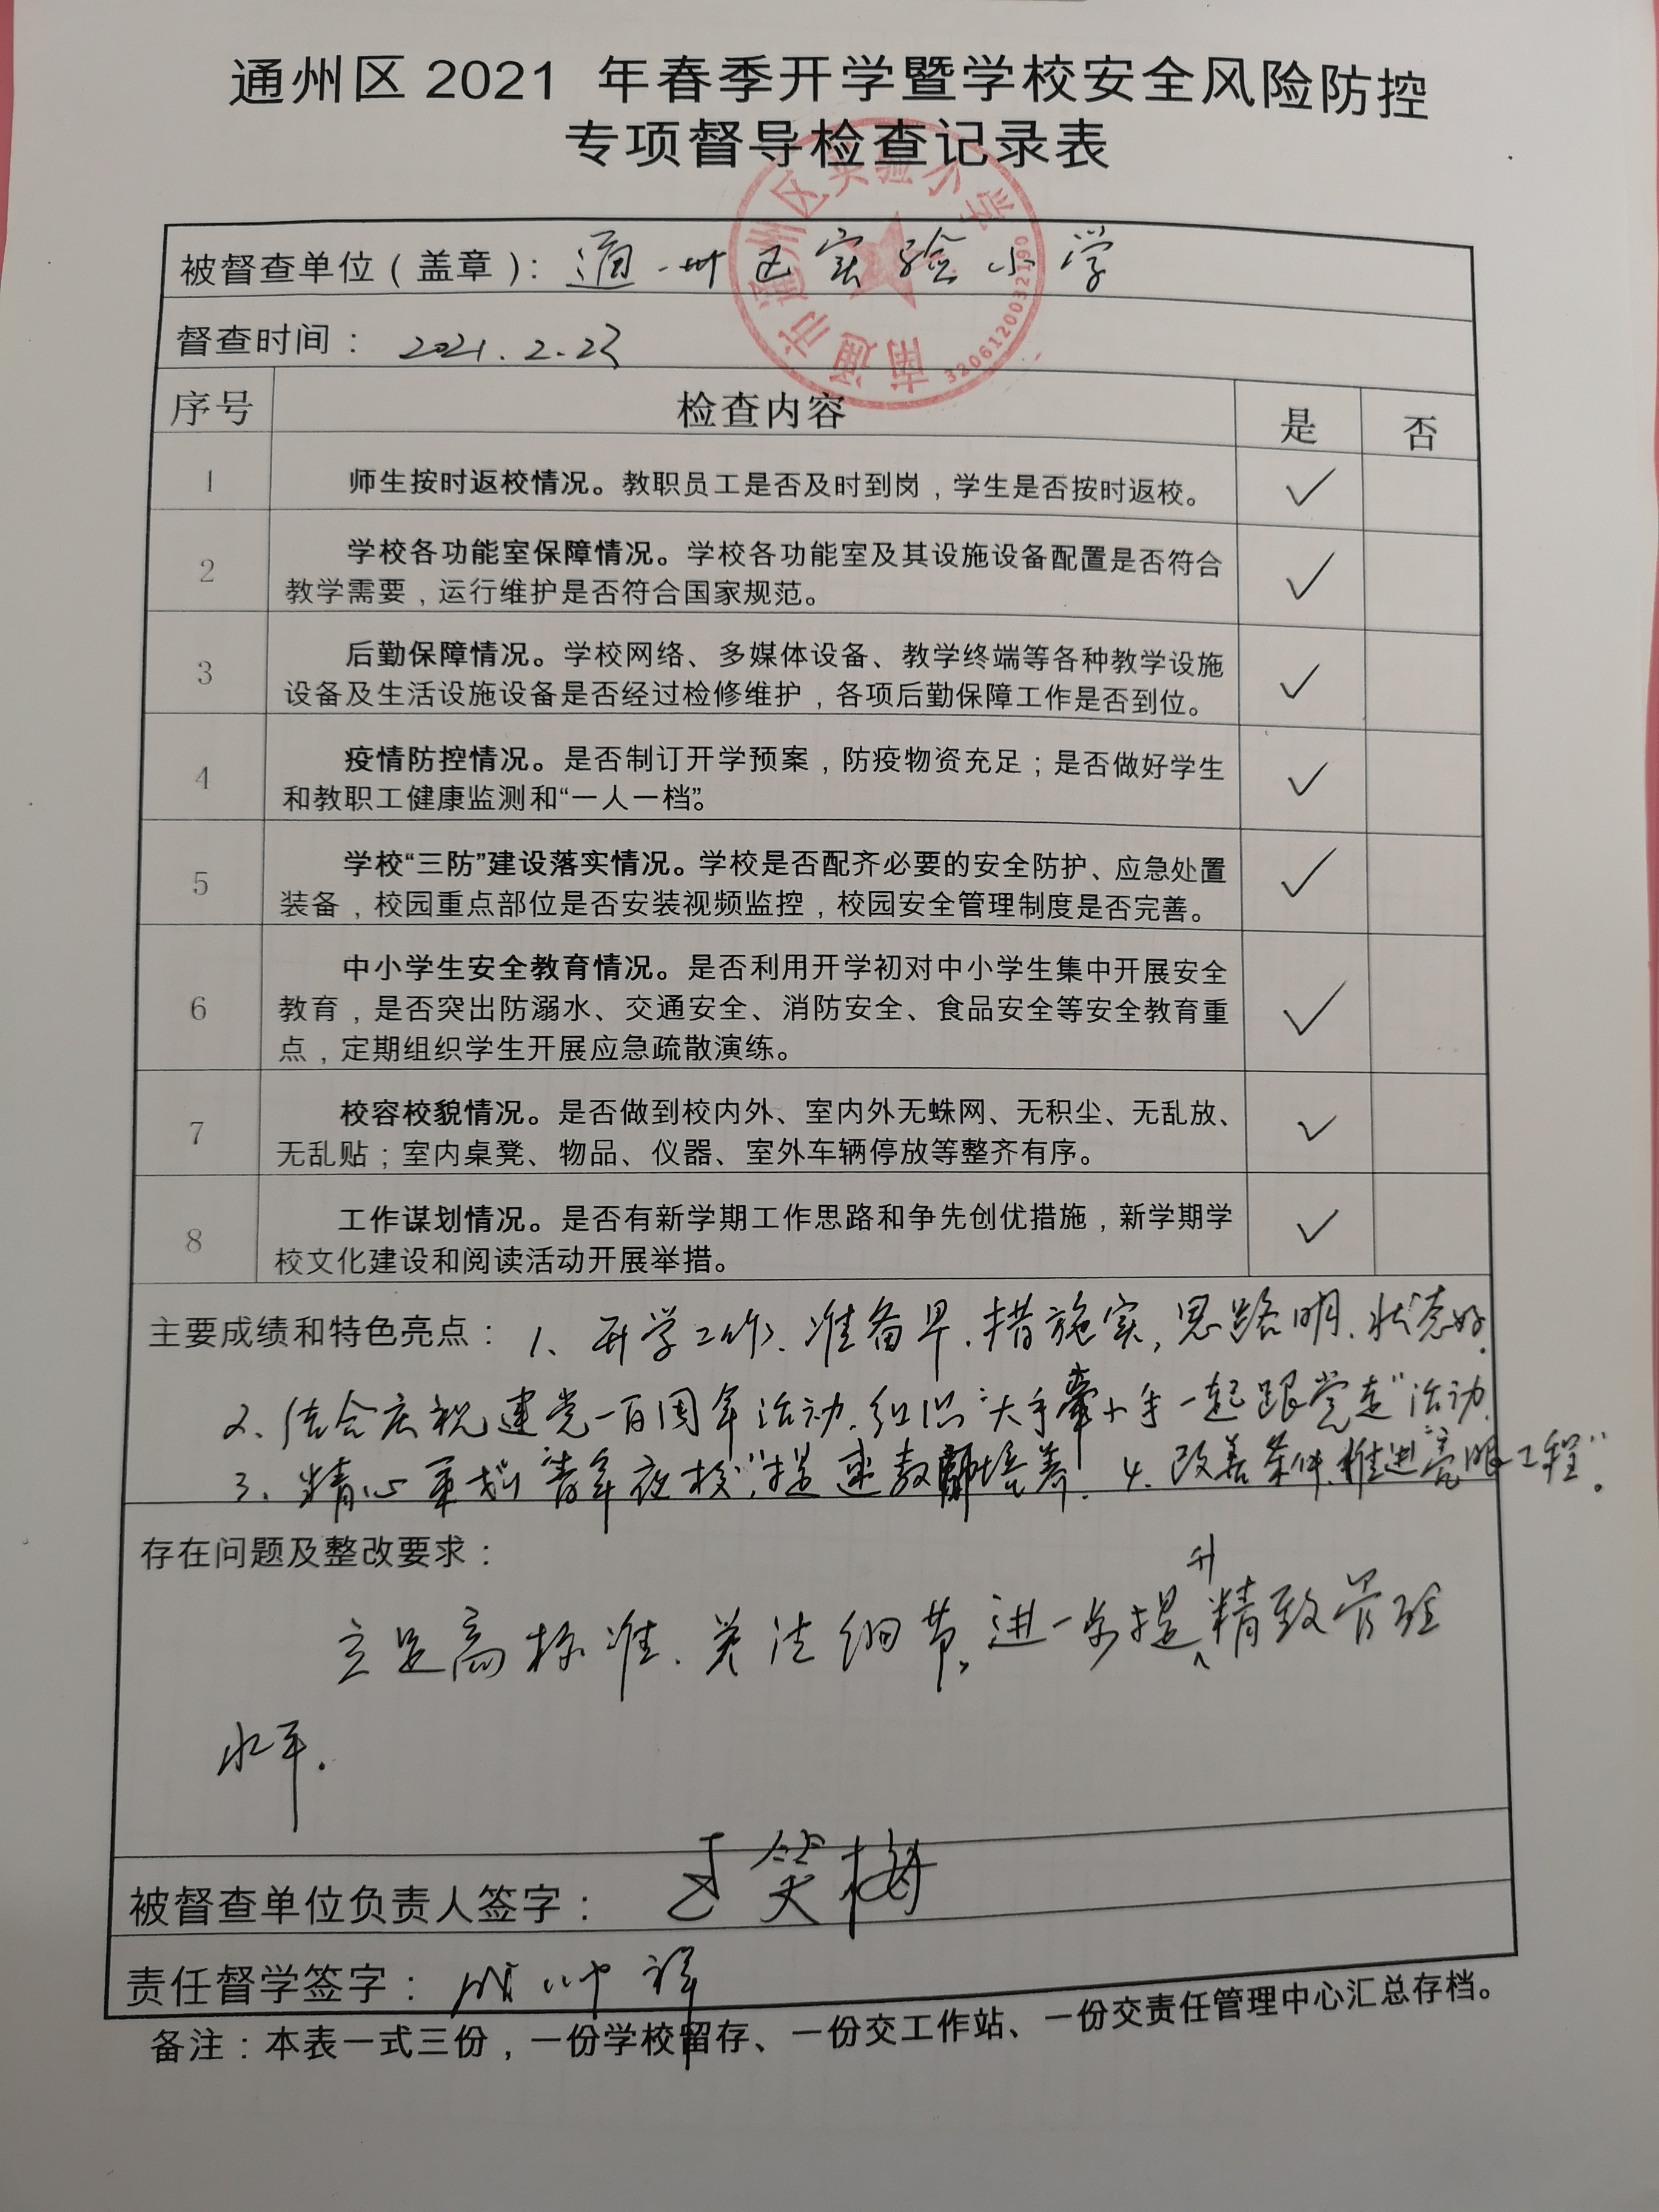 通州区 2021 年春季开学暨学校安全风险防控
专项督导检查记录表
南通市通州区实验小学
3206120032190
被督查单位（盖章）：通州区实验小学
督查时间：2021.2.23
序号 检查内容 是 否
1 师生按时返校情况。教职员工是否及时到岗，学生是否按时返校。 ✓
学校各功能室保障情况。学校各功能室及其设施设备配置是否符合
2 ✓
教学需要，运行维护是否符合国家规范。
后勤保障情况。学校网络、多媒体设备、教学终端等各种教学设施
3 ✓
设备及生活设施设备是否经过检修维护，各项后勤保障工作是否到位。
疫情防控情况。是否制订开学预案，防疫物资充足；是否做好学生
4 ✓
和教职工健康监测和“一人一档”。
学校“三防”建设落实情况。学校是否配齐必要的安全防护、应急处置
5 ✓
装备，校园重点部位是否安装视频监控，校园安全管理制度是否完善。
中小学生安全教育情况。是否利用开学初对中小学生集中开展安全
6 教育，是否突出防溺水、交通安全、消防安全、食品安全等安全教育重 ✓
点，定期组织学生开展应急疏散演练。
校容校貌情况。是否做到校内外、室内外无蛛网、无积尘、无乱放、
7 ✓
无乱贴；室内桌凳、物品、仪器、室外车辆停放等整齐有序。
工作谋划情况。是否有新学期工作思路和争先创优措施，新学期学
8 ✓
校文化建设和阅读活动开展举措。
主要成绩和特色亮点：1、开学工作、准备早、措施实，思路明、状态好.
2、结合庆祝建党一百周年活动.组织“大手牵小手一起跟党走”活动.
3、精心策划“青年夜校”，提速教师培养. 4、改善条件.推进“亮眼工程”.
存在问题及整改要求：
立足高标准、关注细节，进一步提升精致管理
水平.
被督查单位负责人签字：王笑梅
责任督学签字：
备注：本表一式三份，一份学校留存、一份交工作站、一份交责任管理中心汇总存档。